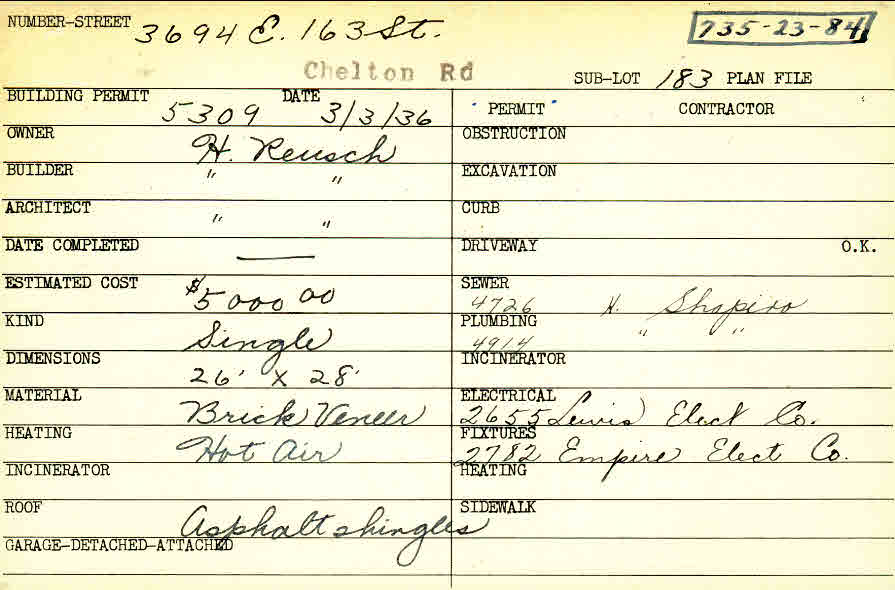 NUMBER-STREET 3694 E. 163 St. 735-23-84
Chelton Rd
SUB-LOT 183 PLAN FILE
BUILDING PERMIT 5309 DATE 3/3/36
OWNER H. Reusch
BUILDER " "
ARCHITECT " "
DATE COMPLETED —
ESTIMATED COST $5000 00
KIND Single
DIMENSIONS 26' X 28'
MATERIAL Brick Veneer
HEATING Hot Air
INCINERATOR
ROOF Asphalt shingles
GARAGE-DETACHED-ATTACHED
PERMIT CONTRACTOR
OBSTRUCTION
EXCAVATION
CURB
DRIVEWAY O.K.
SEWER
4726 H. Shapiro
PLUMBING
4914 " "
INCINERATOR
ELECTRICAL
2655 Lewis Elect Co.
FIXTURES
2782 Empire Elect Co.
HEATING
SIDEWALK